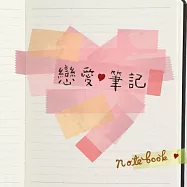 戀愛♥筆記
notebook